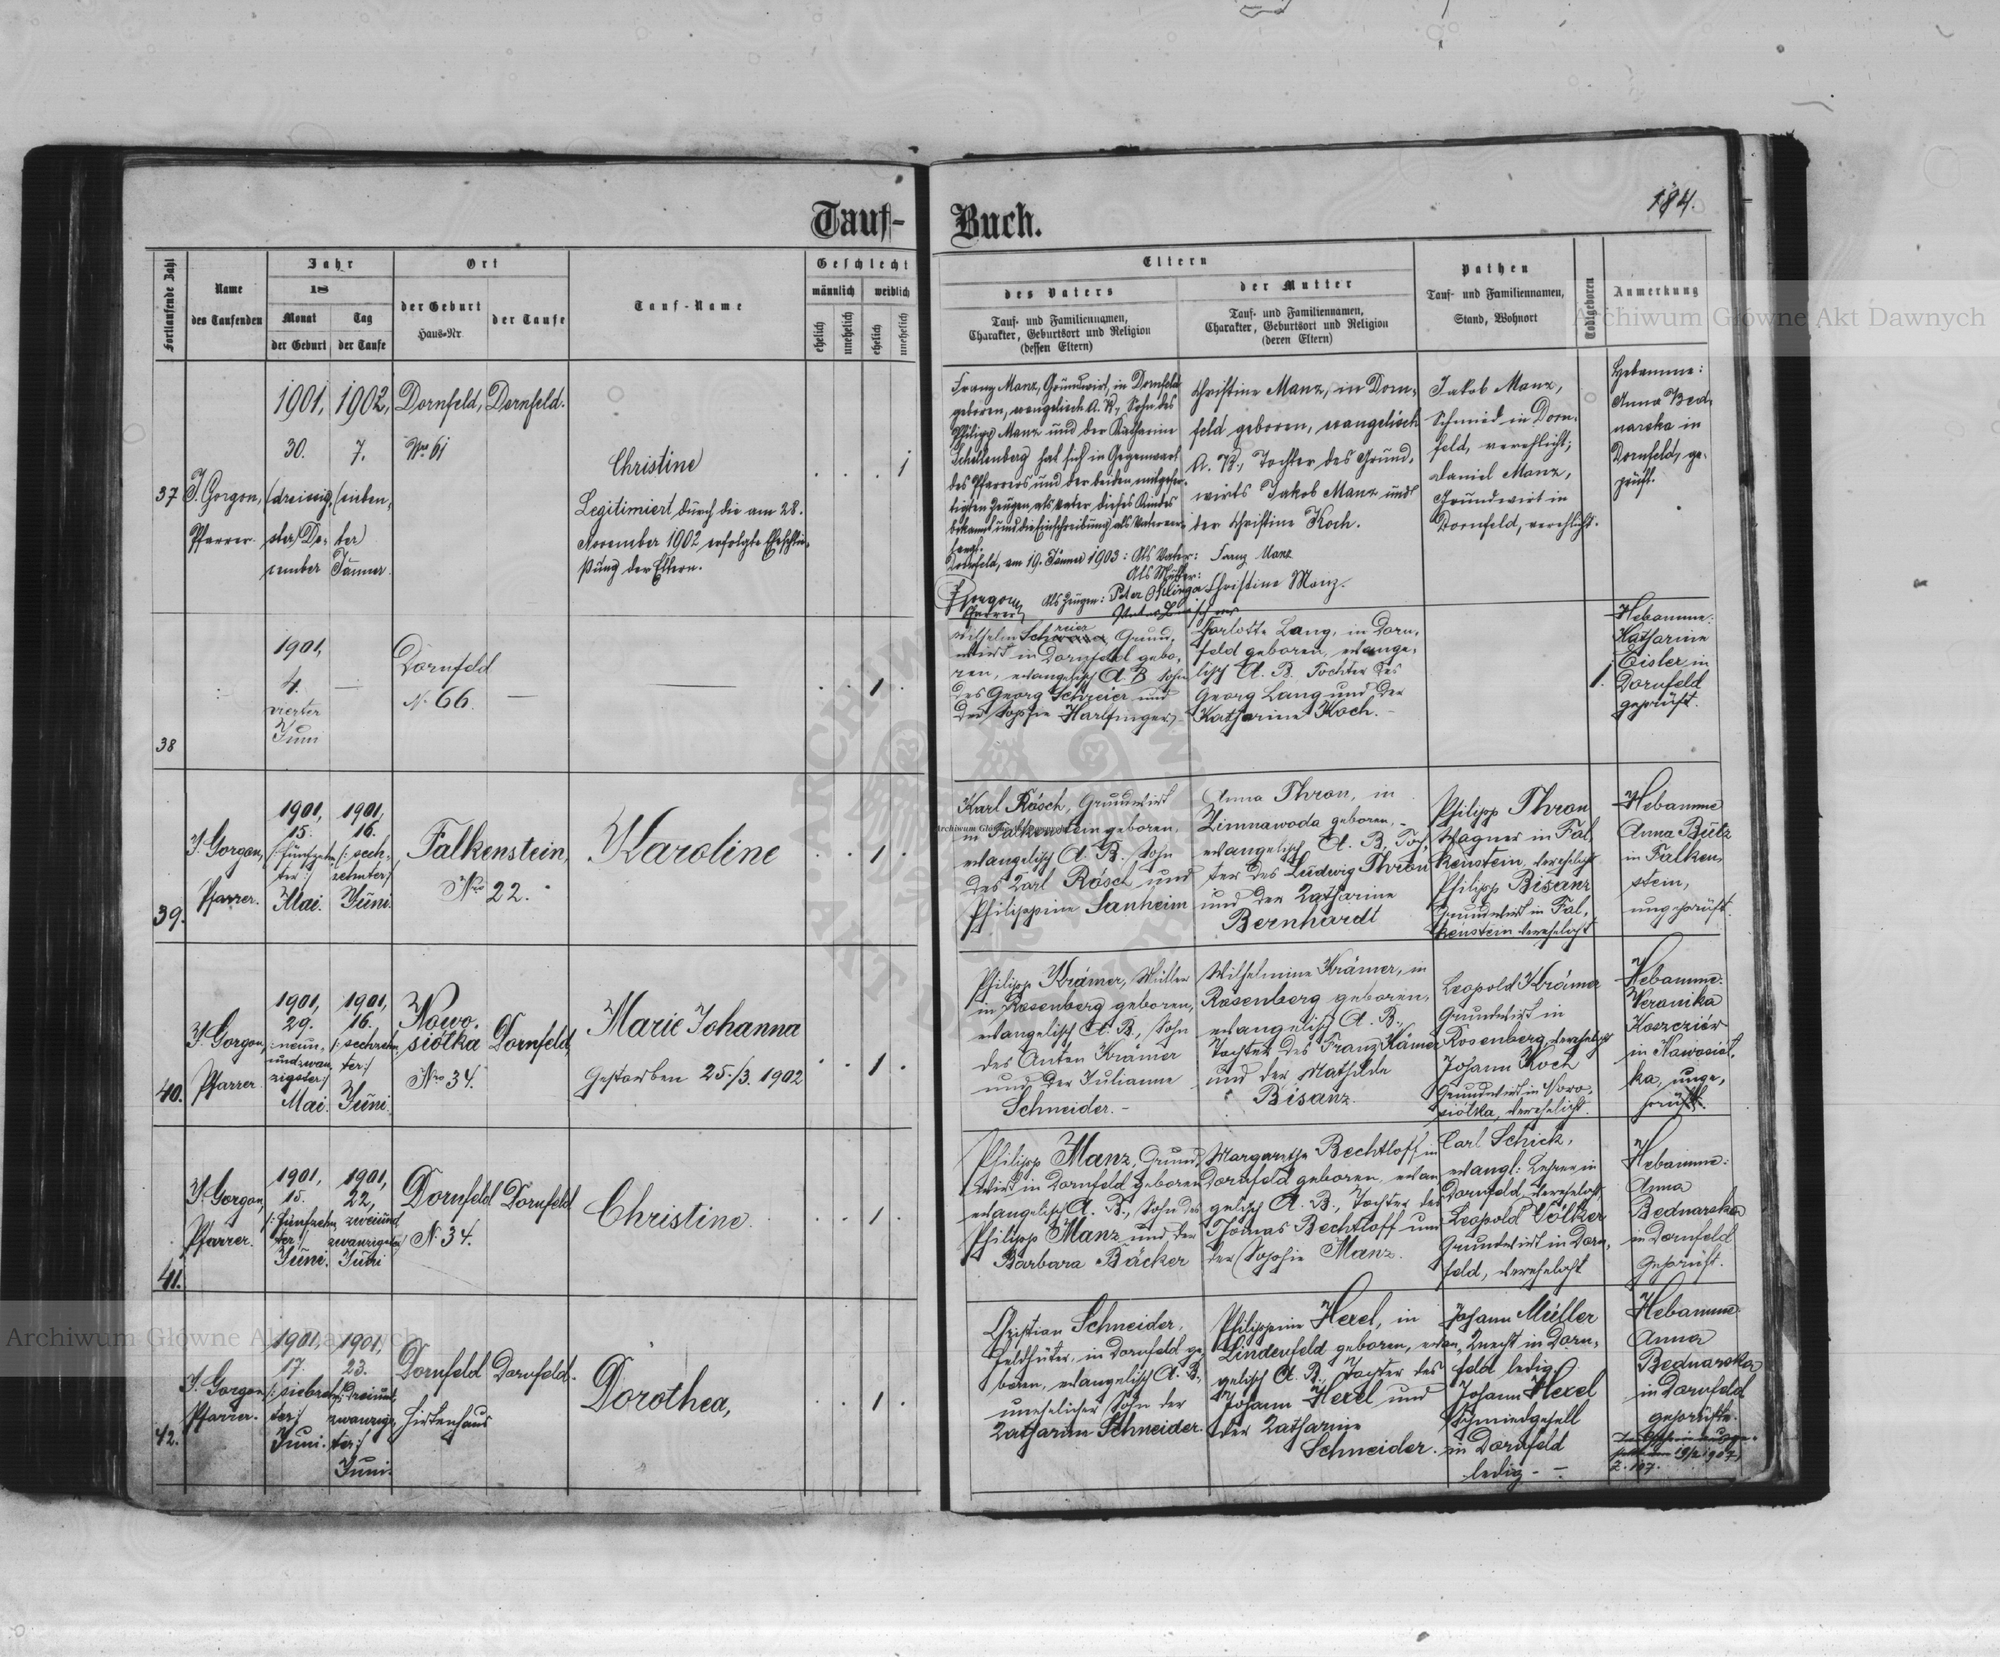 Tauf-
Buch.
184.
Fortlaufende Zahl
Name
des Taufenden
Jahr
18
Monat
der Geburt
Tag
der Taufe
Ort
der Geburt
Haus-Nr.
der Taufe
Tauf-Name
Geschlecht
männlich
weiblich
ehelich
unehelich
ehelich
unehelich
Eltern
des Vaters
Tauf- und Familiennamen,
Charakter, Geburtsort und Religion
(dessen Eltern)
der Mutter
Tauf- und Familiennamen,
Charakter, Geburtsort und Religion
(deren Eltern)
Pathen
Tauf- und Familiennamen,
Stand, Wohnort
Todtgeboren
Anmerkung
37
J. Gorgon,
Pfarrer.
1901,
30.
(dreissig-
ster) De-
cember
1902,
7.
(sieben-
ter)
Jänner.
Dornfeld,
No 61
Dornfeld.
Christine
Legitimiert durch die am 28.
November 1902 erfolgte Eheschlie-
ßung der Eltern.
1
Franz Manz, Grundwirt, in Dornfeld
geboren, evangelisch A. B., Sohn des
Philipp Manz und der Katharine
Schellenberg hat sich in Gegenwart
des Pfarrers und der beiden mitgefer-
tigten Zeugen als Vater dieses Kindes
bekannt und die Einschreibung als Vater ver-
langt.
Dornfeld, am 19. Jänner 1903: Als Vater: Franz Manz
Als Mutter:
Christine Manz.
JGorgon
Pfarrer
Als Zeugen: Peter
Christine Manz, in Dorn-
feld geboren, evangelisch
A. B., Tochter des Grund-
wirts Jakob Manz und
der Christine Koch.
Jakob Manz,
Schmied in Dorn-
feld, verehlicht;
Daniel Manz,
Grundwirt in
Dornfeld, verehlicht.
Hebamme:
Anna Bed-
narska in
Dornfeld, ge-
prüft.
38
1901,
4.
vierter
Juni
—
Dornfeld
N. 66.
—
—
1
Wilhelm Schreier, Grund-
wirt in Dornfeld gebo-
ren, evangelisch A. B. Sohn
des Georg Schreier und
der Sophie Harlfinger.
Carlotte Lang, in Dorn-
feld geboren, evange-
lisch A. B. Tochter des
Georg Lang und der
Katharine Koch. -
1.
Hebamme:
Katharine
Eisler in
Dornfeld
geprüft.
39.
J. Gorgon,
Pfarrer.
1901,
15.
/:fünfzehn-
ter:/
Mai.
1901,
16.
/: sech-
zehnter:/
Juni.
Falkenstein,
Nro 22.
Karoline
1
Karl Rösch, Grundwirt
in Falkenstein geboren,
evangelisch A. B. Sohn
des Karl Rösch und
Philippine Sanheim
Anna Thron, in
Zimnawoda geboren, -
evangelisch A. B, Toch-
ter des Ludwig Thron
und der Katharine
Bernhardt
Philipp Thron
Wagner in Fal-
kenstein, verehelicht
Philipp Bisanz
Grundwirt in Fal-
kenstein verehelicht
Hebamme
Anna Butz
in Falken-
stein,
ungeprüft.
40.
J. Gorgon,
Pfarrer
1901,
29.
/:neun-
undzwan-
zigster:/
Mai.
1901,
16.
/: sechzehn-
ter:/
Juni.
Nowo-
siółka
Nro 34.
Dornfeld,
Marie Johanna
Gestorben 25./3. 1902
1
Philipp Krämer, Müller
in Rosenberg geboren,
evangelisch A. B., Sohn
des Anton Krämer
und der Julianne
Schneider. -
Wilhelmine Krämer, in
Rosenberg geboren,
evangelisch A. B.,
Tochter des Franz Kämer
und der Mathilde
Bisanz.
Leopold Krämer
Grundwirt in
Rosenberg, verehelicht
Johann Koch
Grundwirt in Nowo-
siółka, verehelicht.
Hebamme:
Veronika
in Nawosiół-
ka, unge-
prüft.
41.
J. Gorgon,
Pfarrer.
1901,
15.
/: fünfzehn-
ter:/
Juni.
1901,
22,
zweiund
zwanzigster
Juni
Dornfeld
N. 34.
Dornfeld
Christine.
1
Philipp Manz, Grund-
wirt in Dornfeld geboren
evangelisch A. B., Sohn des
Philipp Manz und der
Barbara Bäcker
Margarethe Bechtloff in
Dornfeld geboren, evan
gelisch A. B., Tochter des
Thomas Bechtloff und
der Sophie Manz.
Carl Schick,
evangl: Lehrer in
Dornfeld, verehelicht,
Leopold Völker
Grundwirt in Dorn-
feld, verehelicht
Hebamme:
Anna
Bednarska
in Dornfeld
geprüft.
42.
J. Gorgon
Pfarrer.
1901,
17.
/: siebzehn-
ter:/
Juni.
1901,
23.
/: dreiund-
zwanzigs-
ter:/
Juni.
Dornfeld
Hirtenhaus
Dornfeld.
Dorothea,
1
Christian Schneider,
Feldhüter, in Dornfeld ge-
boren, evangelisch A. B.,
unehelicher Sohn der
Katharine Schneider.
Philippine Hexel, in
Lindenfeld geboren, evan-
gelisch A. B., Tochter des
Johann Hexel und
der Katharine
Schneider.
Johann Müller
Knecht in Dorn-
feld ledig.
Johann Hexel
Schmiedgesell
in Dornfeld
ledig - -
Hebamme:
Anna
Bednarska
in Dornfeld
geprüfte.
19/2 1907,
Z. 107.
Archiwum Główne Akt Dawnych
Archiwum Główne Akt Dawnych
Archiwum Główne Akt Dawnych